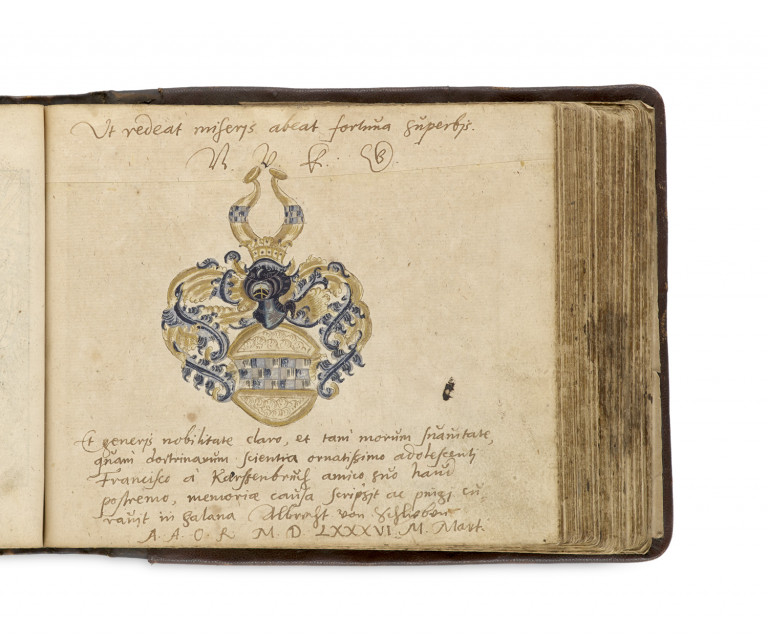 Ut redeat miseris abeat fortuna superbis.
V. V. f. 
Et generis nobilitate claro, et tam morum suauitate,
quam doctrinarum scientia ornatissimo adolescenti
Francisco à Karstenbruch amico suo haud
postremo, memoriæ causa scripsit ac pingi cu-
rauit in Salana Albrecht von Schlieben
A. A. O. R. M. D. LXXXVI. M. Mart.